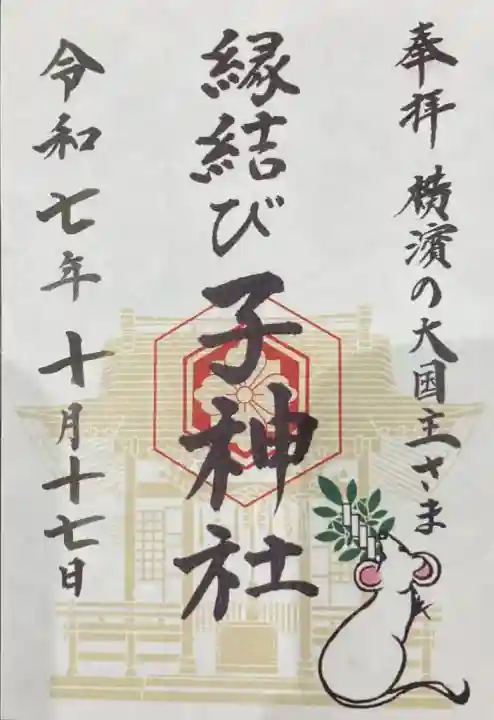 奉拝 横濱の大国主さま
縁結び子神社
令和七年十月十七日